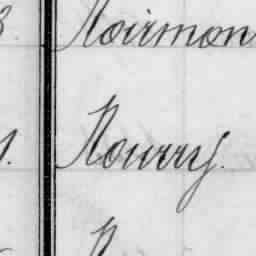 Noirmon
Nourry.